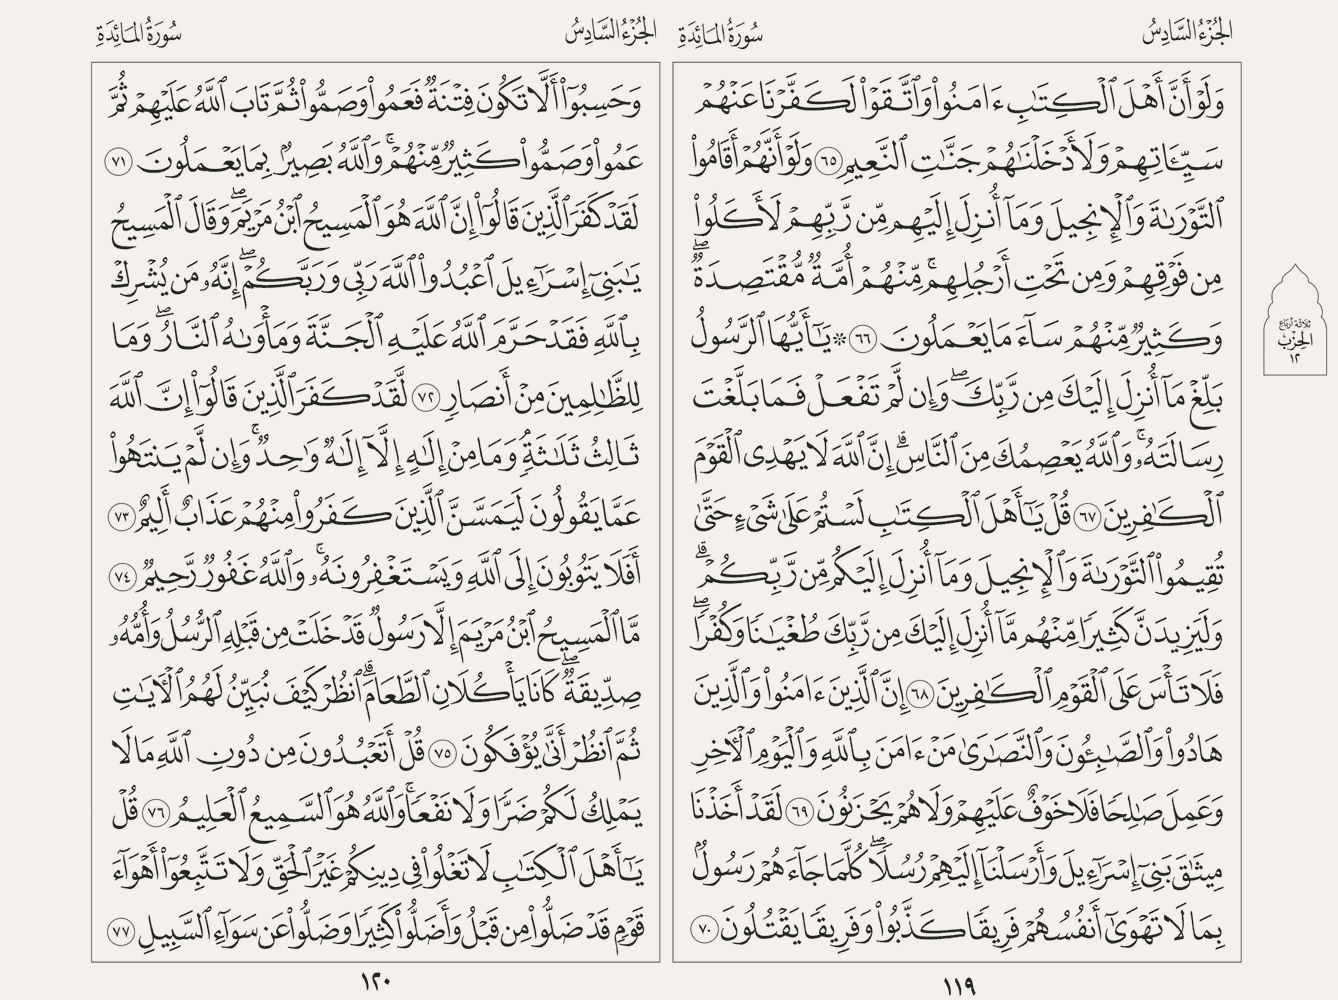 الجُزْءُ السَّادِسُ سُورَةُ المَائِدَةِ
وَلَوۡ أَنَّ أَهۡلَ ٱلۡكِتَٰبِ ءَامَنُواْ وَٱتَّقَوۡاْ لَكَفَّرۡنَا عَنۡهُمۡ
سَيِّـَٔاتِهِمۡ وَلَأَدۡخَلۡنَٰهُمۡ جَنَّٰتِ ٱلنَّعِيمِ ٦٥ وَلَوۡ أَنَّهُمۡ أَقَامُواْ
ٱلتَّوۡرَىٰةَ وَٱلۡإِنجِيلَ وَمَآ أُنزِلَ إِلَيۡهِم مِّن رَّبِّهِمۡ لَأَكَلُواْ
مِن فَوۡقِهِمۡ وَمِن تَحۡتِ أَرۡجُلِهِمۚ مِّنۡهُمۡ أُمَّةٞ مُّقۡتَصِدَةٞۖ
وَكَثِيرٞ مِّنۡهُمۡ سَآءَ مَا يَعۡمَلُونَ ٦٦ ۞ يَٰٓأَيُّهَا ٱلرَّسُولُ
بَلِّغۡ مَآ أُنزِلَ إِلَيۡكَ مِن رَّبِّكَۖ وَإِن لَّمۡ تَفۡعَلۡ فَمَا بَلَّغۡتَ
رِسَالَتَهُۥۚ وَٱللَّهُ يَعۡصِمُكَ مِنَ ٱلنَّاسِۗ إِنَّ ٱللَّهَ لَا يَهۡدِي ٱلۡقَوۡمَ
ٱلۡكَٰفِرِينَ ٦٧ قُلۡ يَٰٓأَهۡلَ ٱلۡكِتَٰبِ لَسۡتُمۡ عَلَىٰ شَيۡءٍ حَتَّىٰ
تُقِيمُواْ ٱلتَّوۡرَىٰةَ وَٱلۡإِنجِيلَ وَمَآ أُنزِلَ إِلَيۡكُم مِّن رَّبِّكُمۡۗ
وَلَيَزِيدَنَّ كَثِيرٗا مِّنۡهُم مَّآ أُنزِلَ إِلَيۡكَ مِن رَّبِّكَ طُغۡيَٰنٗا وَكُفۡرٗاۖ
فَلَا تَأۡسَ عَلَى ٱلۡقَوۡمِ ٱلۡكَٰفِرِينَ ٦٨ إِنَّ ٱلَّذِينَ ءَامَنُواْ وَٱلَّذِينَ
هَادُواْ وَٱلصَّٰبِـُٔونَ وَٱلنَّصَٰرَىٰ مَنۡ ءَامَنَ بِٱللَّهِ وَٱلۡيَوۡمِ ٱلۡأٓخِرِ
وَعَمِلَ صَٰلِحٗا فَلَا خَوۡفٌ عَلَيۡهِمۡ وَلَا هُمۡ يَحۡزَنُونَ ٦٩ لَقَدۡ أَخَذۡنَا
مِيثَٰقَ بَنِيٓ إِسۡرَٰٓءِيلَ وَأَرۡسَلۡنَآ إِلَيۡهِمۡ رُسُلٗاۖ كُلَّمَا جَآءَهُمۡ رَسُولُۢ
بِمَا لَا تَهۡوَىٰٓ أَنفُسُهُمۡ فَرِيقٗا كَذَّبُواْ وَفَرِيقٗا يَقۡتُلُونَ ٧٠
١١٩
ثلاثة أرباع
الحِزْب
١٢
الجُزْءُ السَّادِسُ سُورَةُ المَائِدَةِ
وَحَسِبُوٓاْ أَلَّا تَكُونَ فِتۡنَةٞ فَعَمُواْ وَصَمُّواْ ثُمَّ تَابَ ٱللَّهُ عَلَيۡهِمۡ ثُمَّ
عَمُواْ وَصَمُّواْ كَثِيرٞ مِّنۡهُمۡۚ وَٱللَّهُ بَصِيرُۢ بِمَا يَعۡمَلُونَ ٧١
لَقَدۡ كَفَرَ ٱلَّذِينَ قَالُوٓاْ إِنَّ ٱللَّهَ هُوَ ٱلۡمَسِيحُ ٱبۡنُ مَرۡيَمَۖ وَقَالَ ٱلۡمَسِيحُ
يَٰبَنِيٓ إِسۡرَٰٓءِيلَ ٱعۡبُدُواْ ٱللَّهَ رَبِّي وَرَبَّكُمۡۖ إِنَّهُۥ مَن يُشۡرِكۡ
بِٱللَّهِ فَقَدۡ حَرَّمَ ٱللَّهُ عَلَيۡهِ ٱلۡجَنَّةَ وَمَأۡوَىٰهُ ٱلنَّارُۖ وَمَا
لِلظَّٰلِمِينَ مِنۡ أَنصَارٖ ٧٢ لَّقَدۡ كَفَرَ ٱلَّذِينَ قَالُوٓاْ إِنَّ ٱللَّهَ
ثَالِثُ ثَلَٰثَةٖۘ وَمَا مِنۡ إِلَٰهٍ إِلَّآ إِلَٰهٞ وَٰحِدٞۚ وَإِن لَّمۡ يَنتَهُواْ
عَمَّا يَقُولُونَ لَيَمَسَّنَّ ٱلَّذِينَ كَفَرُواْ مِنۡهُمۡ عَذَابٌ أَلِيمٌ ٧٣
أَفَلَا يَتُوبُونَ إِلَى ٱللَّهِ وَيَسۡتَغۡفِرُونَهُۥۚ وَٱللَّهُ غَفُورٞ رَّحِيمٞ ٧٤
مَّا ٱلۡمَسِيحُ ٱبۡنُ مَرۡيَمَ إِلَّا رَسُولٞ قَدۡ خَلَتۡ مِن قَبۡلِهِ ٱلرُّسُلُ وَأُمُّهُۥ
صِدِّيقَةٞۖ كَانَا يَأۡكُلَانِ ٱلطَّعَامَۗ ٱنظُرۡ كَيۡفَ نُبَيِّنُ لَهُمُ ٱلۡأٓيَٰتِ
ثُمَّ ٱنظُرۡ أَنَّىٰ يُؤۡفَكُونَ ٧٥ قُلۡ أَتَعۡبُدُونَ مِن دُونِ ٱللَّهِ مَا لَا
يَمۡلِكُ لَكُمۡ ضَرّٗا وَلَا نَفۡعٗاۚ وَٱللَّهُ هُوَ ٱلسَّمِيعُ ٱلۡعَلِيمُ ٧٦ قُلۡ
يَٰٓأَهۡلَ ٱلۡكِتَٰبِ لَا تَغۡلُواْ فِي دِينِكُمۡ غَيۡرَ ٱلۡحَقِّ وَلَا تَتَّبِعُوٓاْ أَهۡوَآءَ
قَوۡمٖ قَدۡ ضَلُّواْ مِن قَبۡلُ وَأَضَلُّواْ كَثِيرٗا وَضَلُّواْ عَن سَوَآءِ ٱلسَّبِيلِ ٧٧
١٢٠